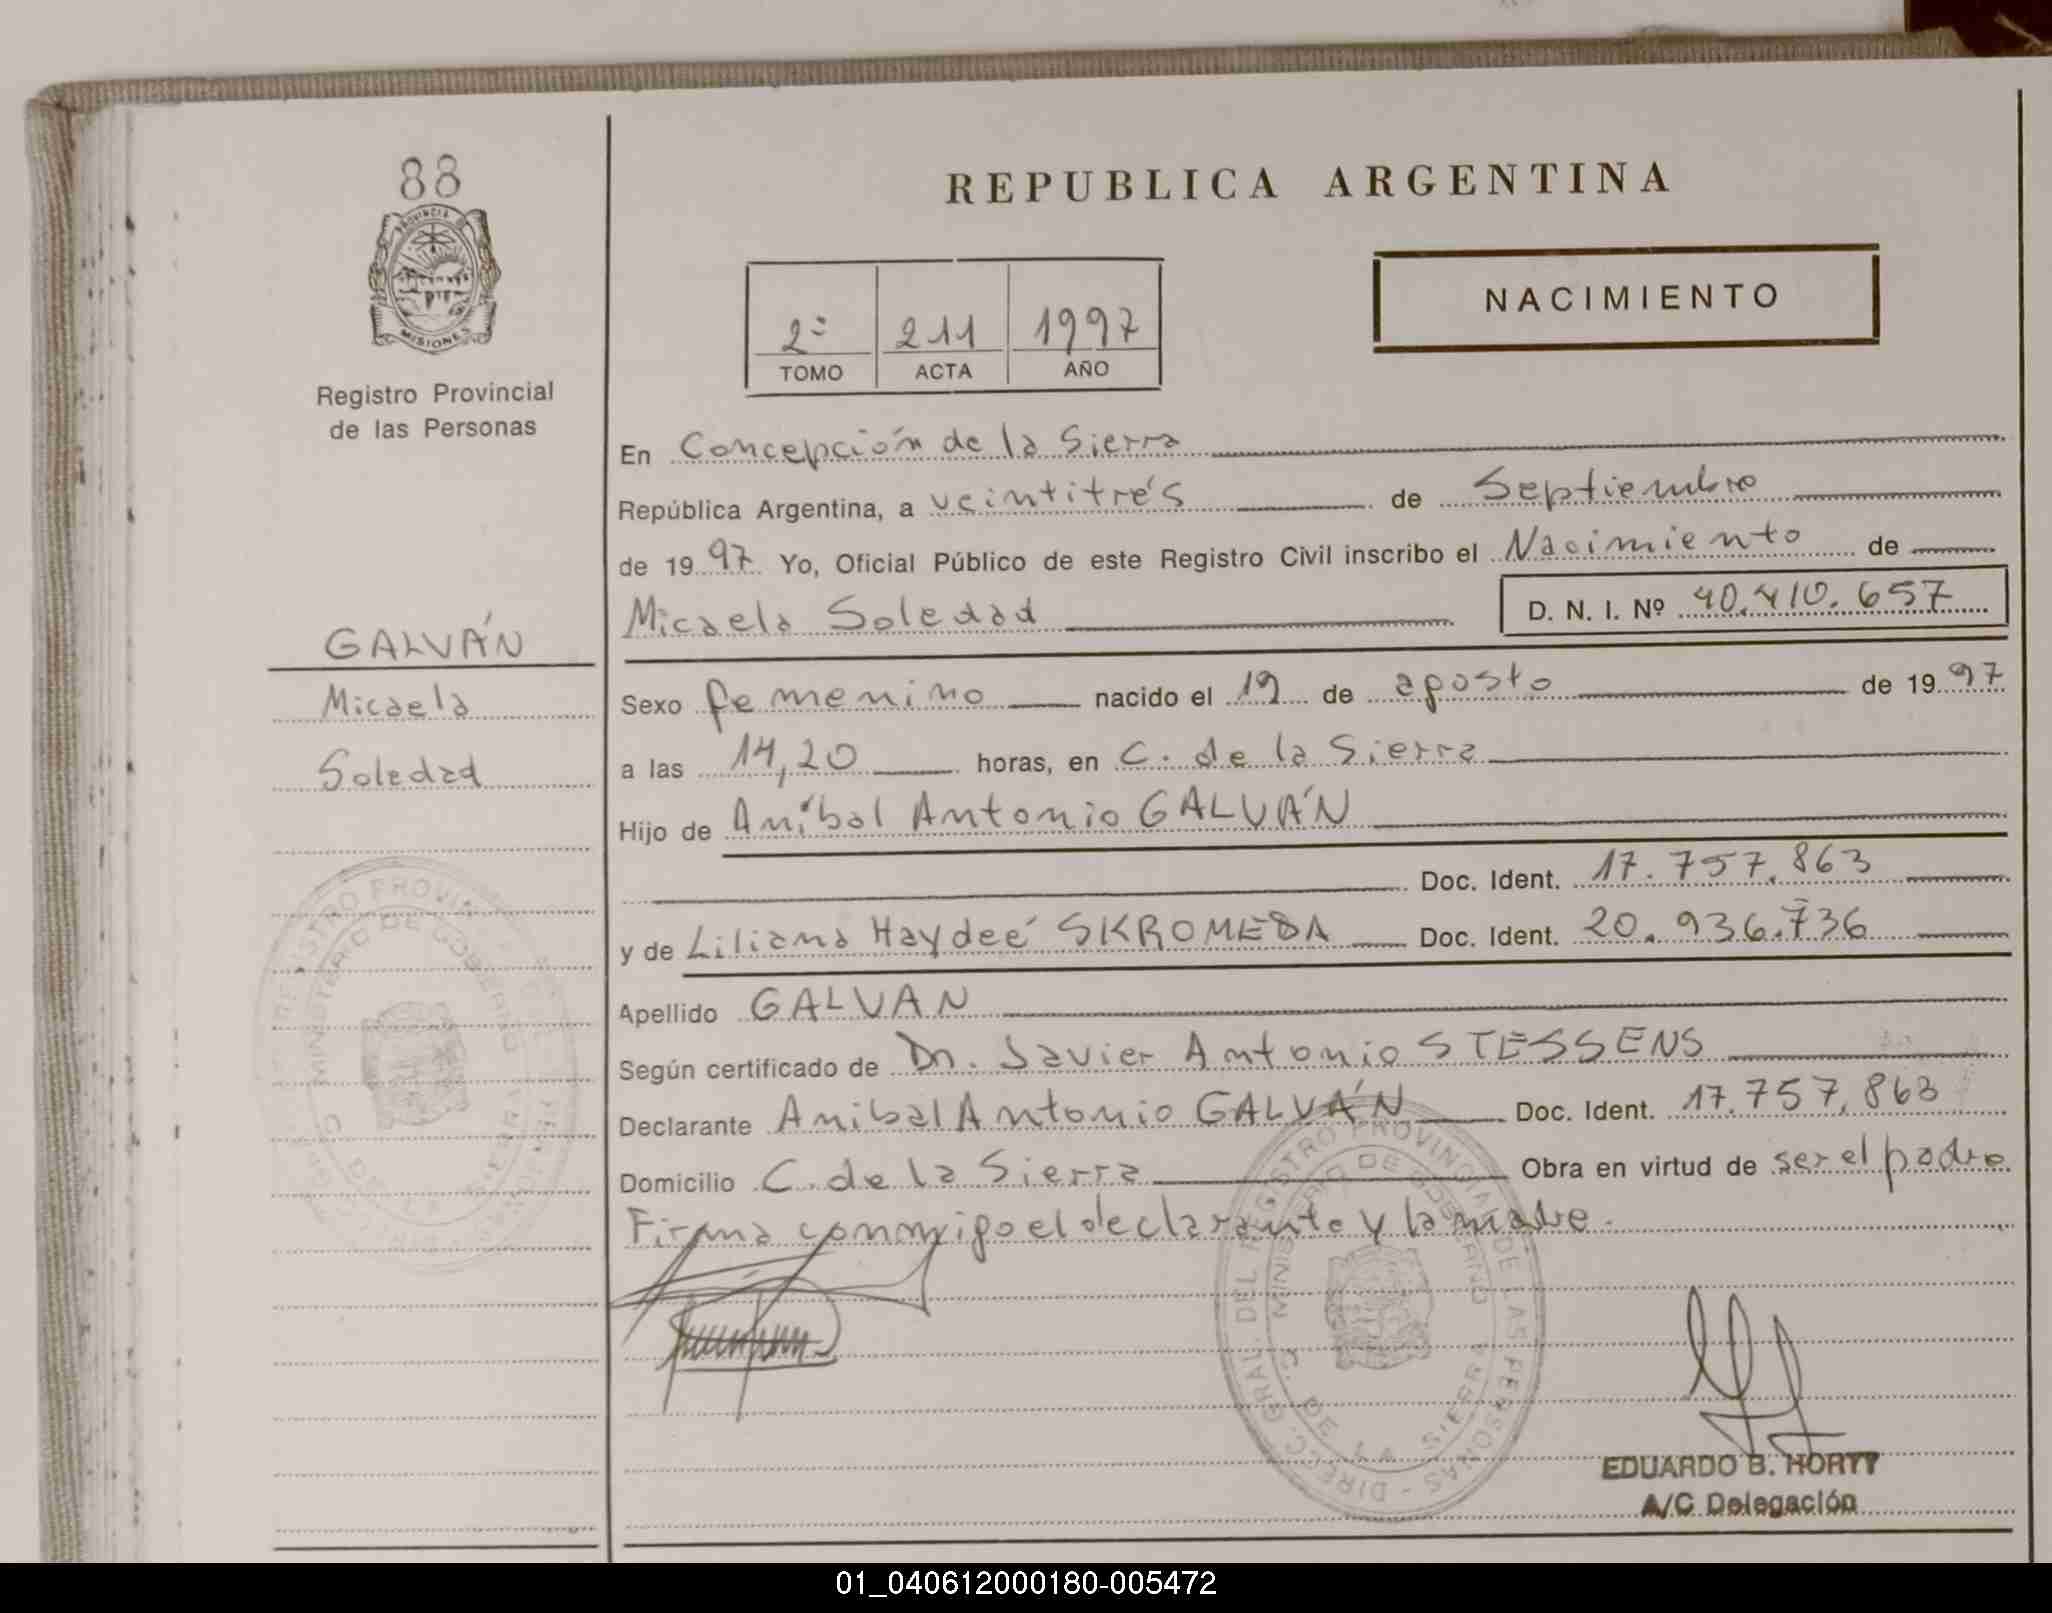 88
PROVINCIA DE
MISIONES
Registro Provincial
de las Personas
GALVÁN
Micaela
Soledad
REPUBLICA ARGENTINA
NACIMIENTO
2º 211 1997
TOMO ACTA AÑO
En Concepción de la Sierra
República Argentina, a veintitrés de Septiembre
de 1997 Yo, Oficial Público de este Registro Civil inscribo el Nacimiento de
Micaela Soledad D. N. I. Nº 40.410.657
Sexo femenino nacido el 19 de agosto de 1997
a las 14,20 horas, en C. de la Sierra
Hijo de Aníbal Antonio GALVÁN
Doc. Ident. 17.757.863
y de Liliana Haydeé SKROMEDA Doc. Ident. 20.936.736
Apellido GALVAN
Según certificado de Dn. Javier Antonio STESSENS
Declarante Anibal Antonio GALVÁN Doc. Ident. 17.757.863
Domicilio C. de la Sierra Obra en virtud de ser el padre
Firma conmigo el declarante y la madre.
DIRECC. GRAL. DEL REGISTRO PROVINCIAL DE LAS PERSONAS
MINISTERIO DE GOBIERNO
C. DE LA SIERRA
EDUARDO B. HORTT
A/C Delegación
01_040612000180-005472